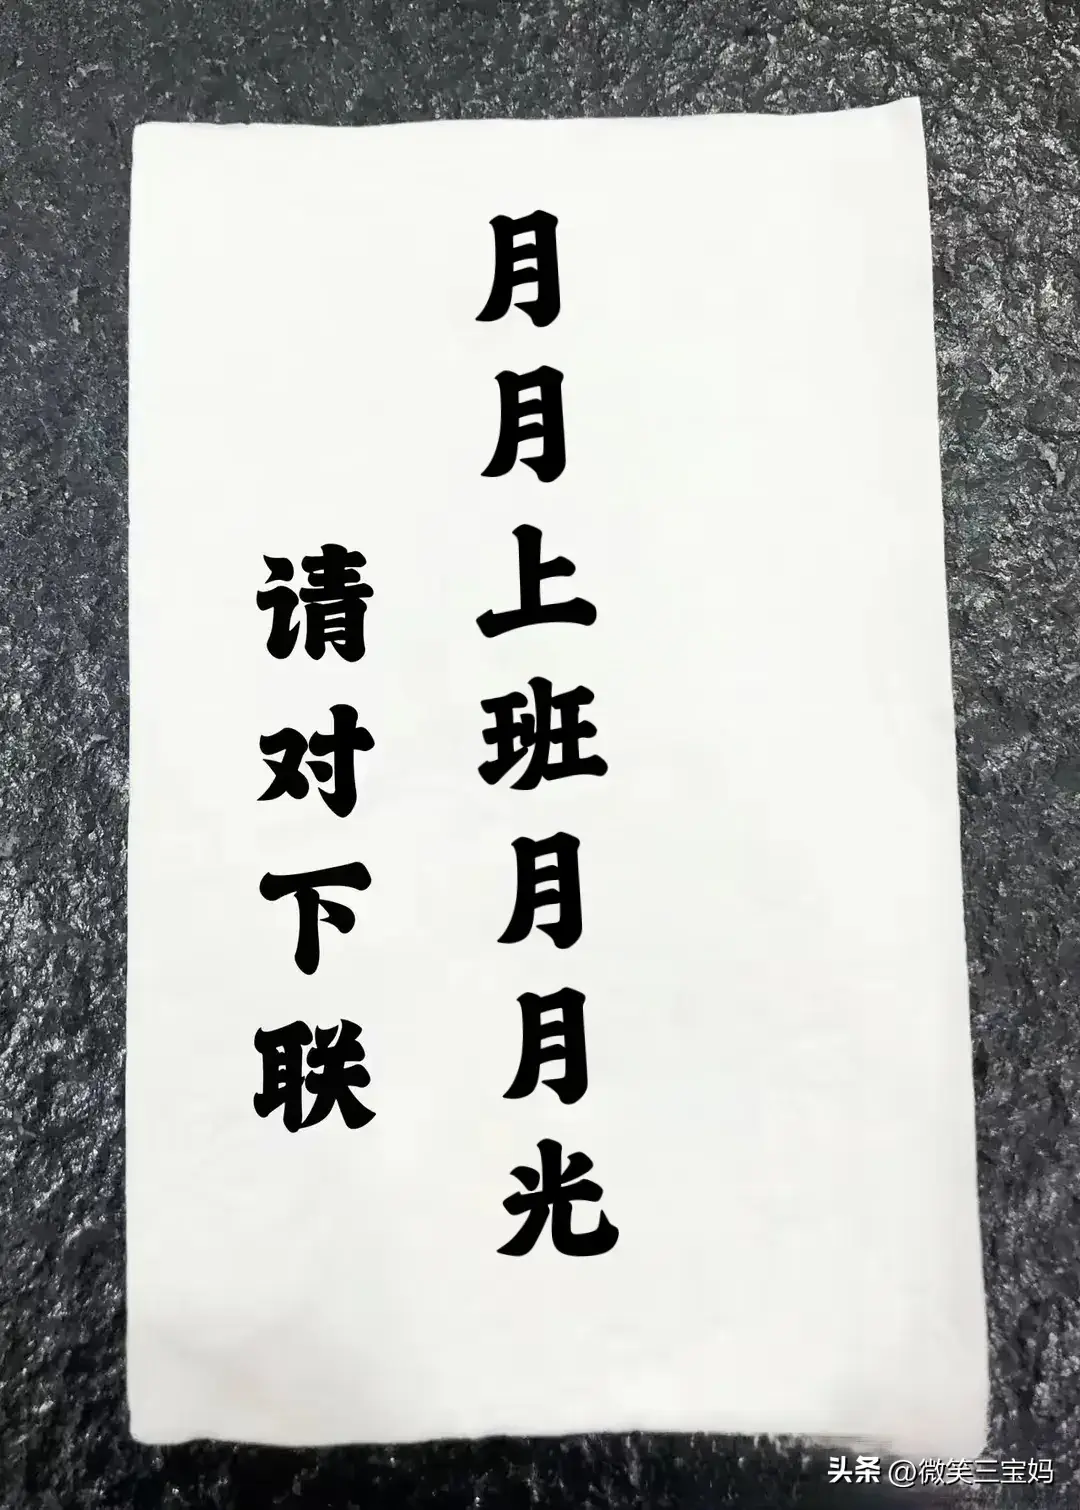 月月上班月月光
请对下联
头条 @微笑三宝妈